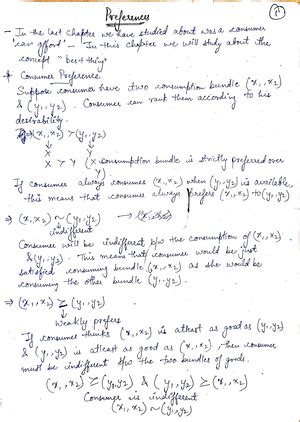 Preferences
- In the last chapter we have studied about was a consumer
"can afford" - In this chapter we will study about the
concept "best things"
* Consumer Preference
Suppose consumer have two consumption bundle (x₁, x₂)
& (y₁, y₂). Consumer can rank them according to his
desirability.
(x₁, x₂) > (y₁, y₂)
X > Y (X consumption bundle is strictly preferred over
If consumer always consumes (x₁, x₂) when (y₁, y₂) is available,
this means that consumer always prefers (x₁, x₂) to (y₁, y₂)
⇒ (x₁, x₂) ~ (y₁, y₂)
indifferent
Consumer will be indifferent b/w the consumption of (x₁, x₂)
& (y₁, y₂). This means that consumer would be just
satisfied consuming bundle (x₁, x₂) as she would be
consuming the other bundle (y₁, y₂).
⇒ (x₁, x₂) ≥ (y₁, y₂)
Weakly prefers
If consumer thinks (x₁, x₂) is atleast as good as (y₁, y₂)
& (y₁, y₂) is atleast as good as (x₁, x₂), then consumer
must be indifferent b/w the two bundles of goods.
(x₁, x₂) ≥ (y₁, y₂) & (y₁, y₂) ≥ (x₁, x₂)
Consumer is indifferent
(x₁, x₂) ~ (y₁, y₂)